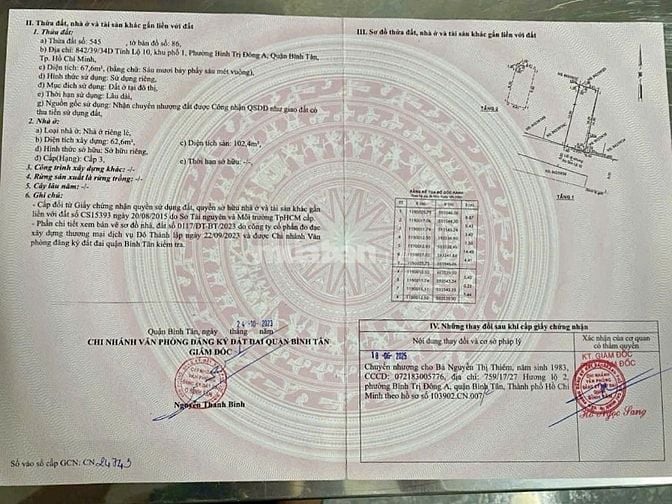 II. Thửa đất, nhà ở và tài sản khác gắn liền với đất
1. Thửa đất:
a) Thửa đất số: 545, tờ bản đồ số: 86,
b) Địa chỉ: 842/39/34D Tỉnh Lộ 10, khu phố 1, Phường Bình Trị Đông A, Quận Bình Tân,
Tp. Hồ Chí Minh,
c) Diện tích: 67,6m², (bằng chữ: Sáu mươi bảy phẩy sáu mét vuông),
d) Hình thức sử dụng: Sử dụng riêng,
đ) Mục đích sử dụng: Đất ở tại đô thị,
e) Thời hạn sử dụng: Lâu dài,
g) Nguồn gốc sử dụng: Nhận chuyển nhượng đất được Công nhận QSDĐ như giao đất có
thu tiền sử dụng đất,
2. Nhà ở:
a) Loại nhà ở: Nhà ở riêng lẻ,
b) Diện tích xây dựng: 62,6m², c) Diện tích sàn: 102,4m²,
d) Hình thức sở hữu: Sở hữu riêng,
đ) Cấp(Hạng): Cấp 3, e) Thời hạn sở hữu: -/-
3. Công trình xây dựng khác: -/-
4. Rừng sản xuất là rừng trồng: -/-
5. Cây lâu năm: -/-
6. Ghi chú:
- Cấp đổi từ Giấy chứng nhận quyền sử dụng đất, quyền sở hữu nhà ở và tài sản khác gắn
liền với đất số CS15393 ngày 20/08/2015 do Sở Tài nguyên và Môi trường TpHCM cấp.
- Phần chi tiết xem bản vẽ sơ đồ nhà, đất số 0117/ĐT-BT/2023 do công ty cổ phần đo đạc
xây dựng thương mại dịch vụ Đô Thành lập ngày 22/09/2023 và được Chi nhánh Văn
phòng đăng ký đất đai quận Bình Tân kiểm tra.
24-10-2023
Quận Bình Tân, ngày tháng năm
CHI NHÁNH VĂN PHÒNG ĐĂNG KÝ ĐẤT ĐAI QUẬN BÌNH TÂN
GIÁM ĐỐC
Nguyễn Thanh Bình
Số vào sổ cấp GCN: CN 24743
III. Sơ đồ thửa đất, nhà ở và tài sản khác gắn liền với đất
TẦNG 2
TẦNG 1
IV. Những thay đổi sau khi cấp giấy chứng nhận
Nội dung thay đổi và cơ sở pháp lý
Xác nhận của cơ quan
có thẩm quyền
18-06-2025
Chuyển nhượng cho Bà Nguyễn Thị Thiêm, năm sinh 1983,
CCCD: 072183005776, địa chỉ: 759/17/27 Hương lộ 2,
phường Bình Trị Đông A, quận Bình Tân, Thành phố Hồ Chí
Minh theo hồ sơ số 103902.CN.007
KT. GIÁM ĐỐC
Hồ Ngọc Sang